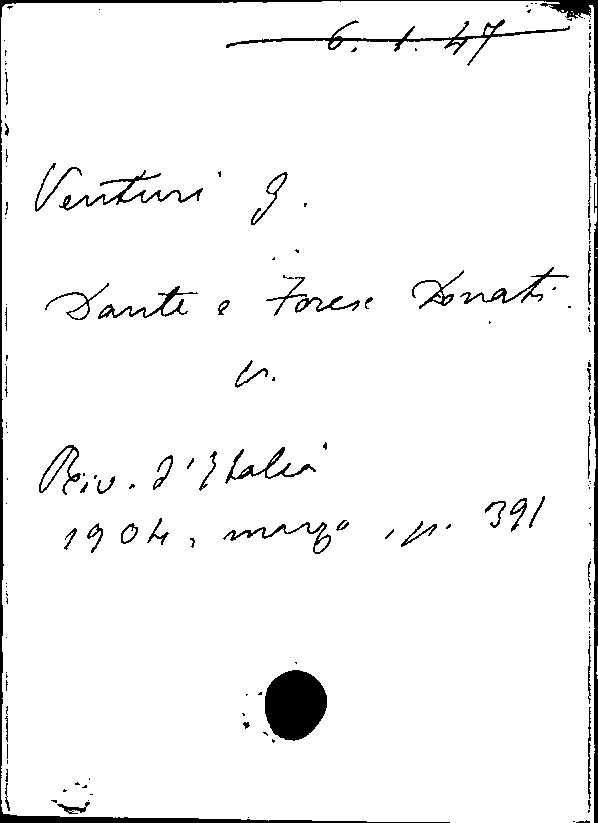 6. 1. 47
Venturi G.
Dante e Forese Donati.
v.
Riv. d'Italia
1904, marzo, p. 391